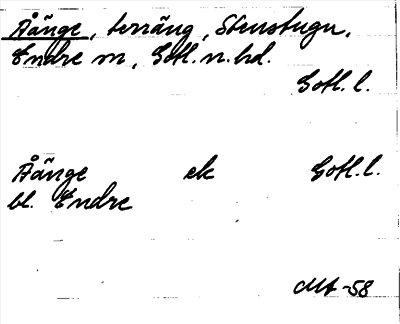 Åänge, terräng, Stenstugu,
Endre sn, Gotl. n. hd.
Gotl. l.
Åänge ek Gotl. l.
bl. Endre
-58